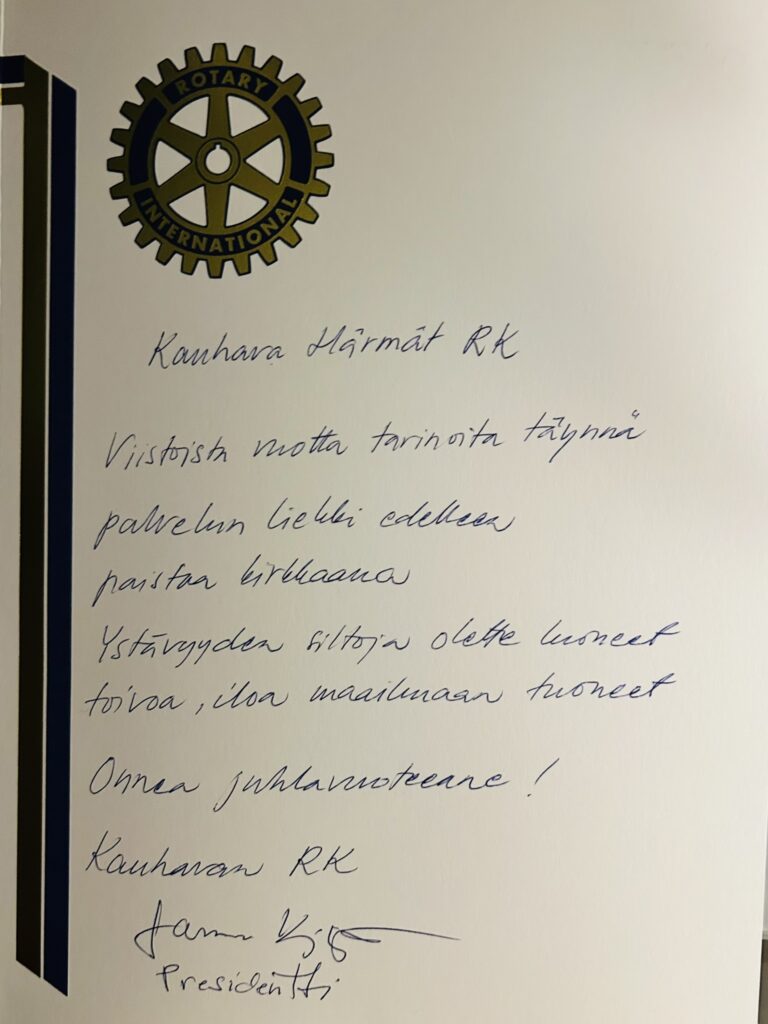 ROTARY
INTERNATIONAL
Kauhava Härmät RK
Viistoista vuotta tarinoita täynnä
palvelun liekki edelleen
paistaa kirkkaana
Ystävyyden siltoja olette luoneet
toivoa, iloa maailmaan tuoneet
Onnea juhlavuoteene!
Kauhavan RK
Presidentti